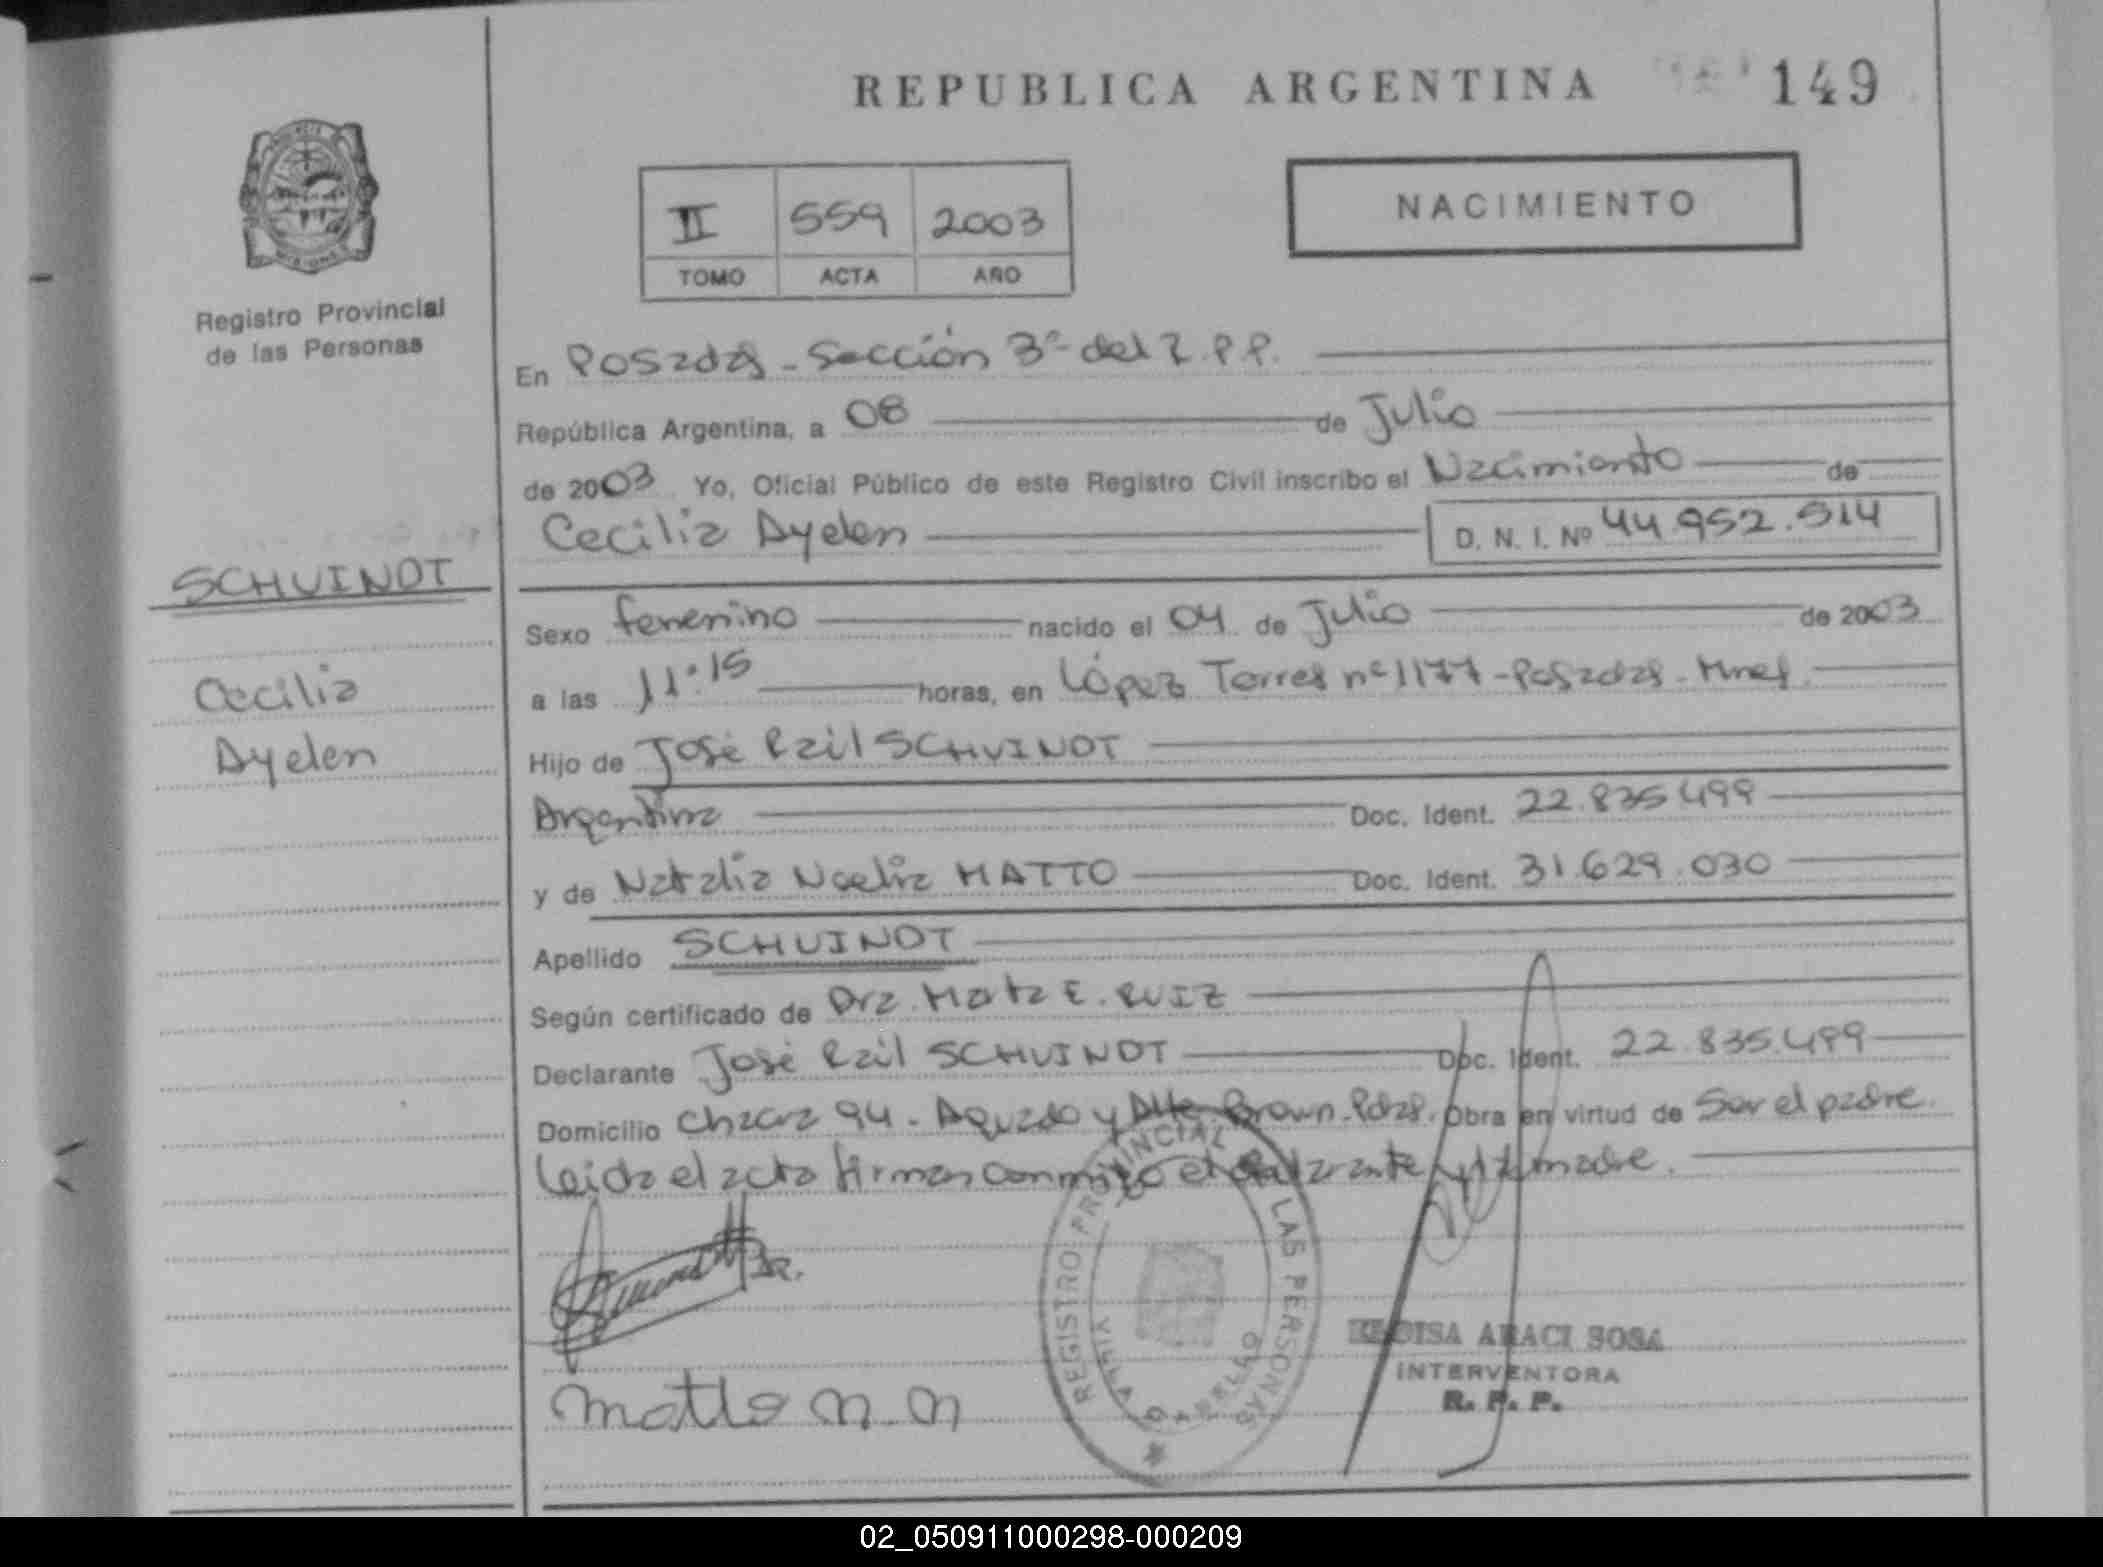 REPUBLICA ARGENTINA 149
NACIMIENTO
II 559 2003
TOMO ACTA AÑO
Registro Provincial
de las Personas
En Posadas - Sección 3ª del R.P.P.
República Argentina, a 08 de Julio
de 2003 Yo, Oficial Público de este Registro Civil inscribo el Nacimiento de
Cecilia Ayelen D. N. I. Nº 44.952.514
SCHVINDT
Cecilia
Ayelen
Sexo femenino nacido el 04 de Julio de 2003
a las 11:15 horas, en López Torres nº 1177 - Posadas - Mnes.
Hijo de José Rail SCHVINDT
Argentina Doc. Ident. 22.835.499
y de Natalia Noelia MATTO Doc. Ident. 31.629.030
Apellido SCHVINDT
Según certificado de Dra. Marta E. RUIZ
Declarante José Rail SCHVINDT Doc. Ident. 22.835.499
Domicilio Chacra 94 - Aguado y Alte. Brown - Pdas. Obra en virtud de Ser el padre.
Leida el acta firman conmigo el declarante y la madre.
REGISTRO PROVINCIAL DE LAS PERSONAS
ARACI SOSA
INTERVENTORA
R. P. P.
Matto N. N
02_050911000298-000209